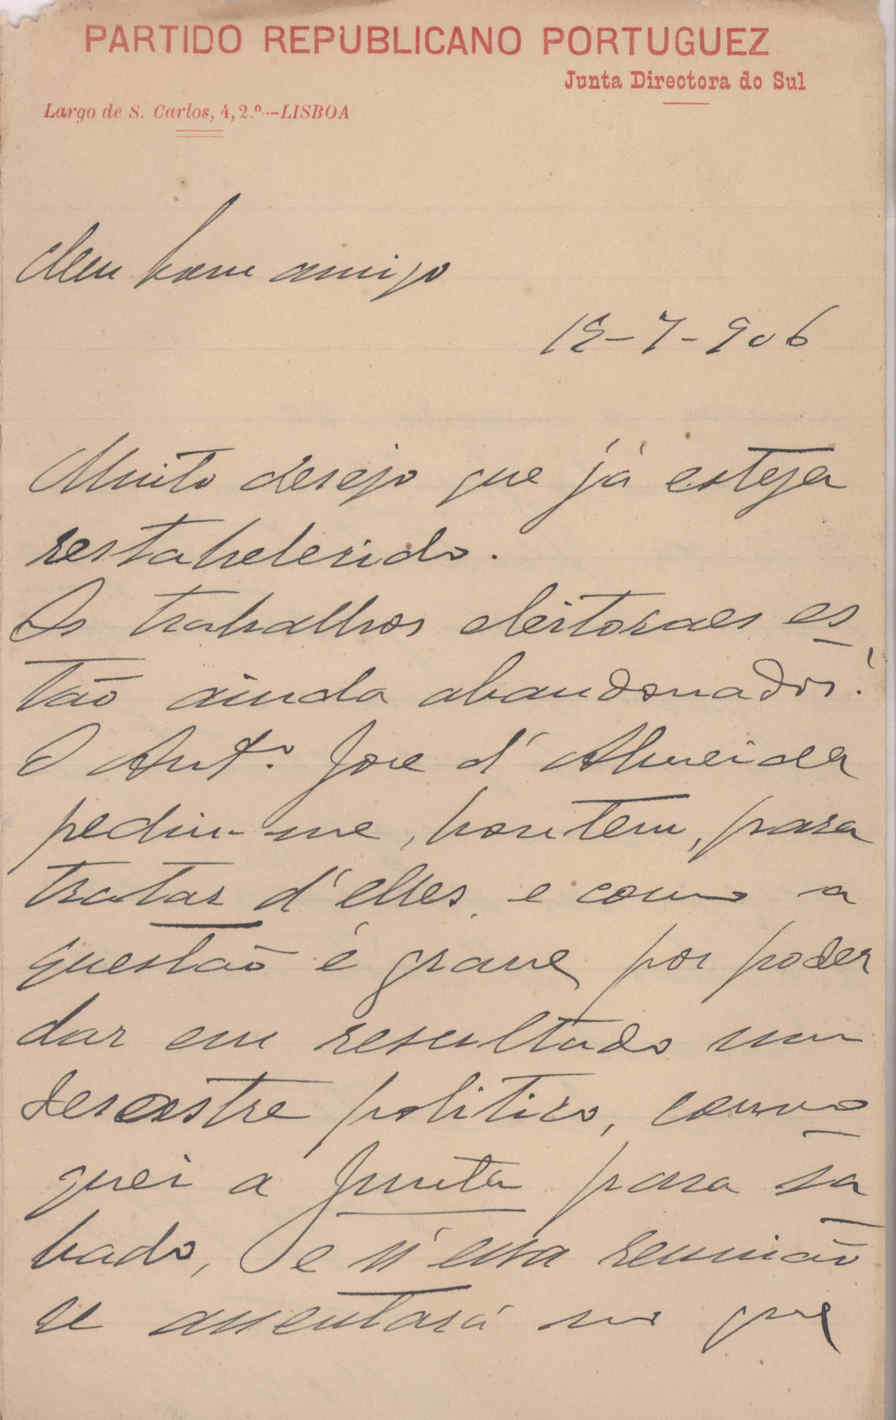 PARTIDO REPUBLICANO PORTUGUEZ
Junta Directora do Sul
Largo de S. Carlos, 4, 2.º--LISBOA
Meu bom amigo
19-7-906
Muito desejo que já esteja
restabelecido.
Os trabalhos eleitoraes es
tão ainda abandonados!
O Antº. José d'Almeida
pediu-me, hontem, para
tratar d'elles, e como a
questão é grave, por poder
dar em resultado um
desastre politico, convo
quei a Junta para sa
bado, e n'essa reunião
se assentará no que